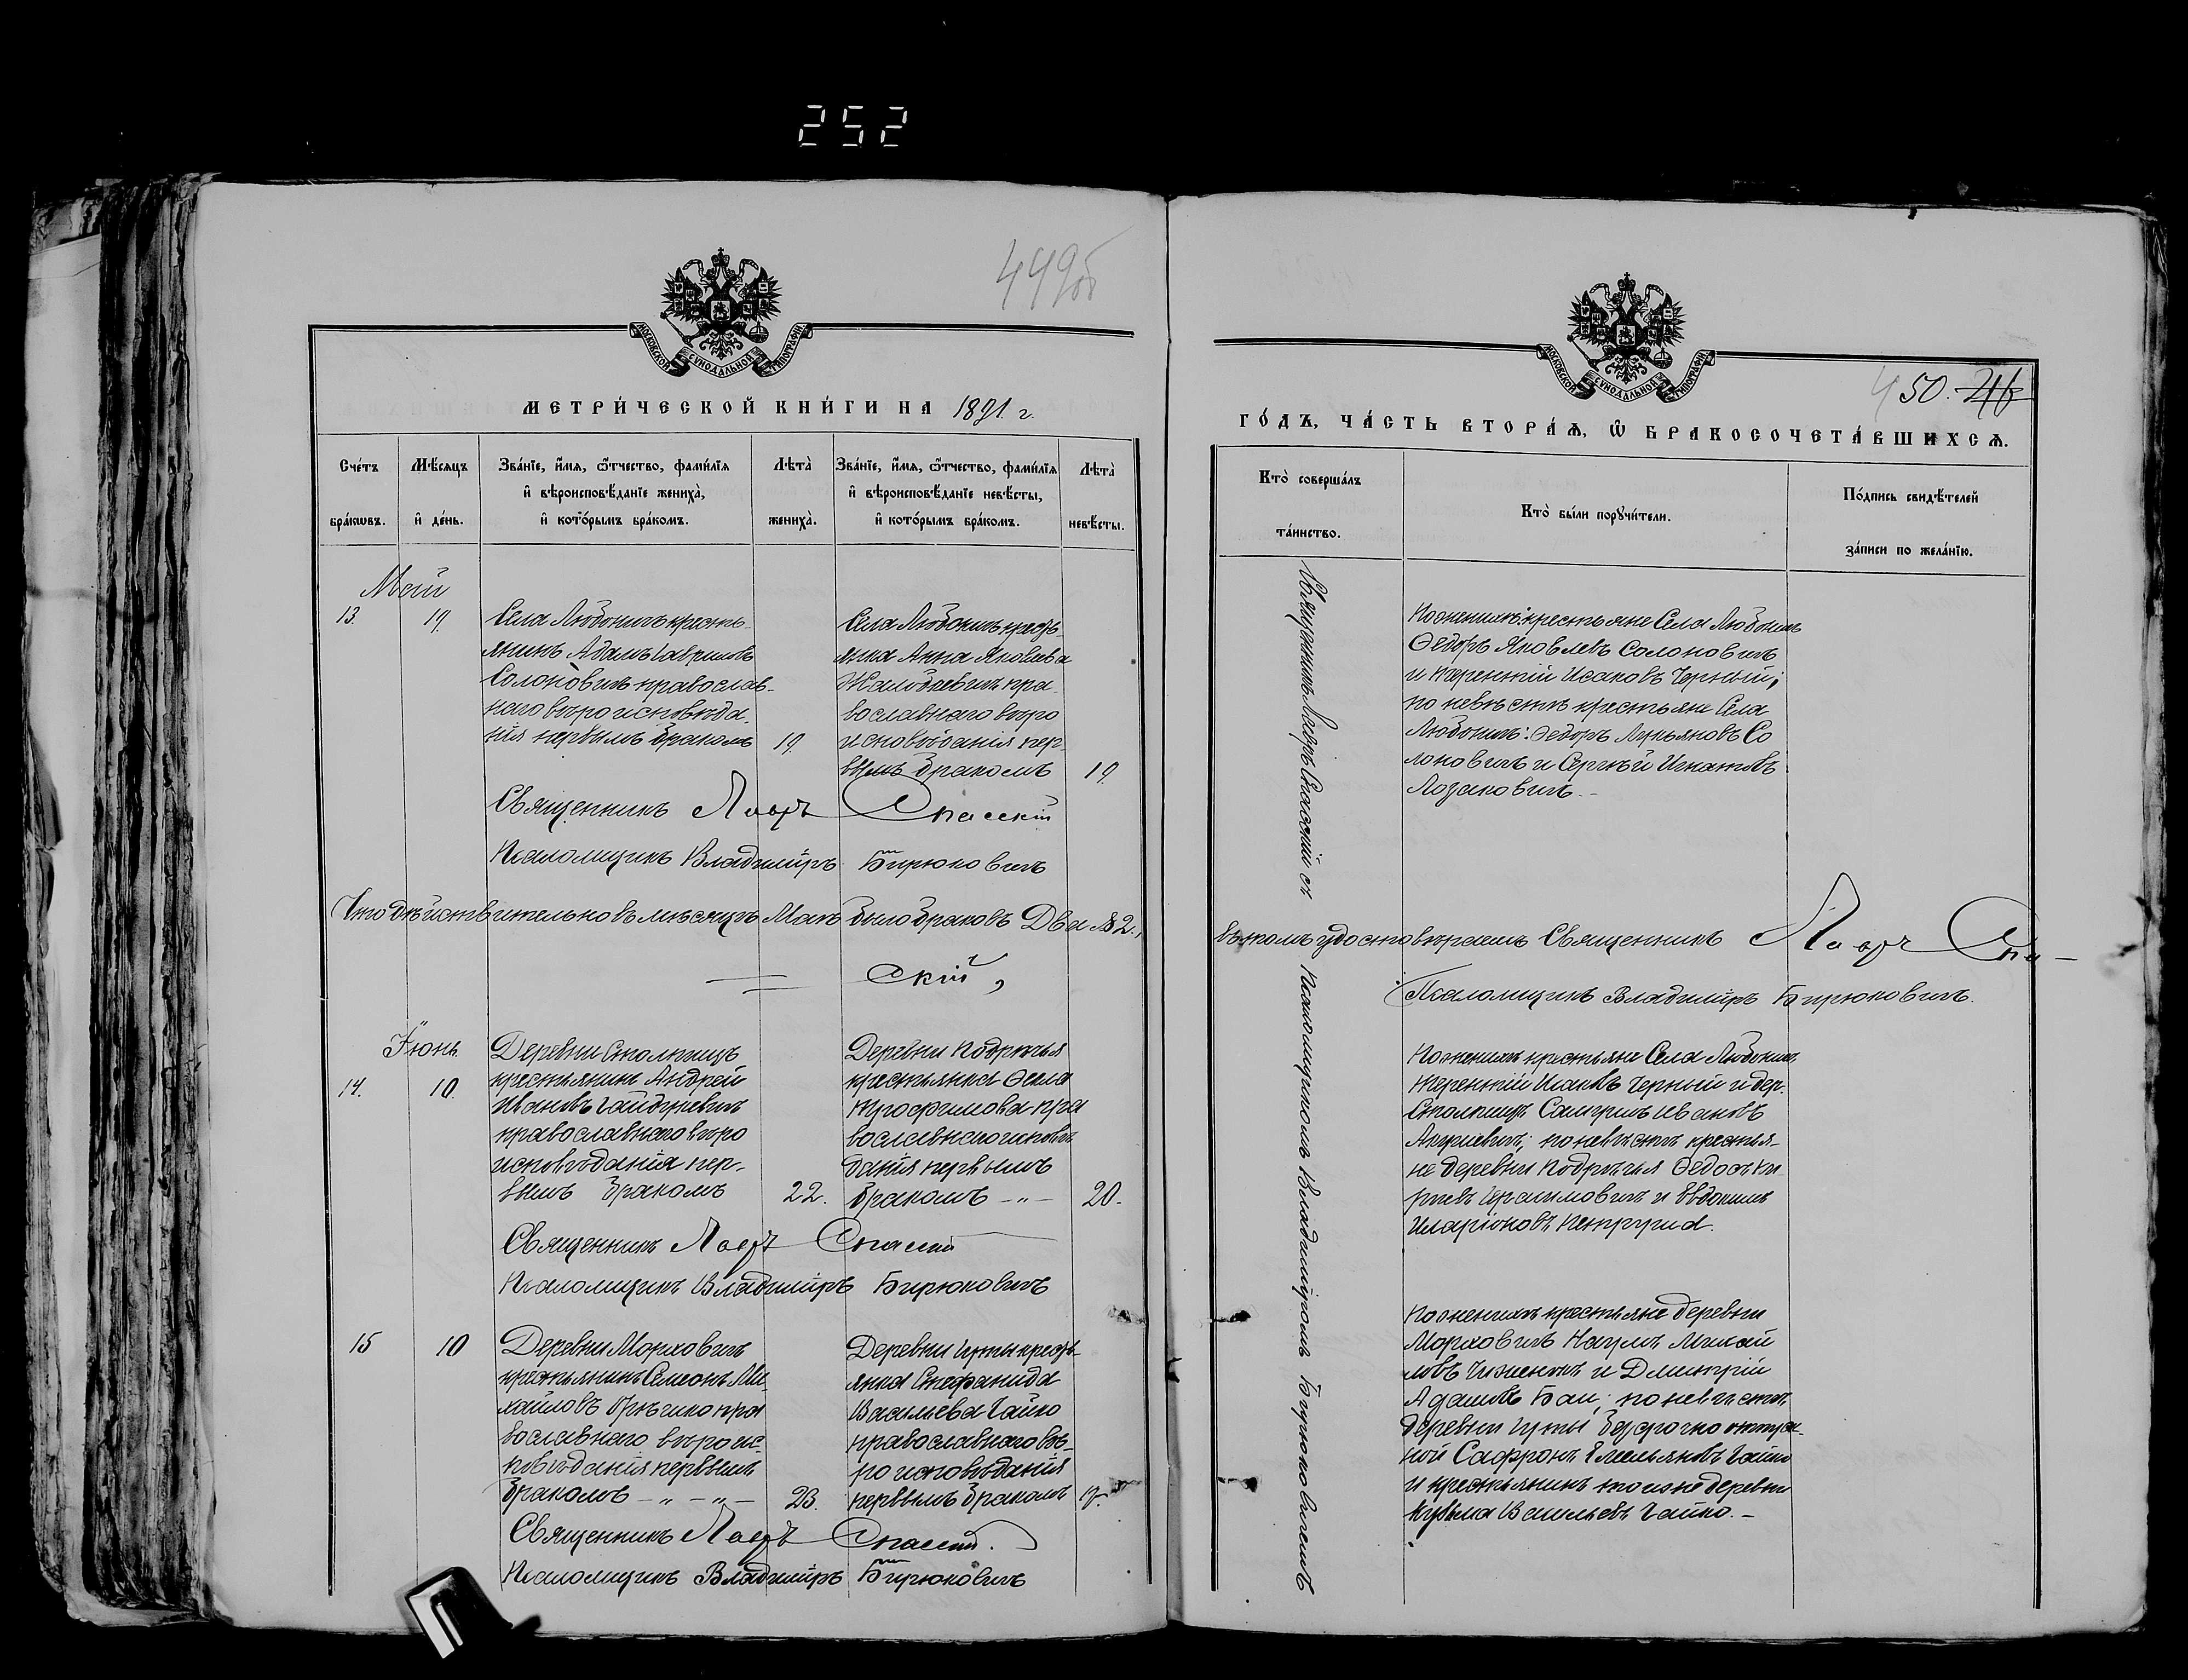 252
449об
МОСКОВСКОЙ СУНОДАЛЬНОЙ ТИПОГРАФІИ
МЕТРИ́ЧЕСКОЙ КНИ́ГИ НА 1891 г.
Сче́тъ бра́кѡвъ.
Мѣ́сяцъ и҆ де́нь.
Зва́нїе, и҆́мѧ, ѻ҆́тчество, фами́лїѧ
и҆ вѣроисповѣ́данїе жениха̀,
и҆ кото́рымъ бра́комъ.
Лѣ́та̀ жениха̀.
Зва́нїе, и҆́мѧ, ѻ҆́тчество, фами́лїѧ
и҆ вѣроисповѣ́данїе невѣ́сты,
и҆ кото́рымъ бра́комъ.
Лѣ́та̀ невѣ́сты.
Май
13.
19.
Села Любоничъ кресть-
янинъ Адамъ Гавриловъ
Солоновичъ православ-
наго вѣроисповѣда-
нія первымъ бракомъ
19.
Села Любоничъ кресть-
янка Анна Яковлева
пра-
вославнаго вѣро
исповѣданія пер-
вымъ бракомъ
19.
Священникъ Лавръ Спасскій
Псаломщикъ Владиміръ Бирюковичъ
Что дѣйствительно въ мѣсяцѣ Маѣ было браковъ Два № 2.,
скій,
Іюнь
14.
10.
Деревни Столпищъ
крестьянинъ Андрей
Ивановъ Гайдукевичъ
православнаго вѣро
исповѣданія пер-
вымъ бракомъ
22.
Деревни Подрѣчья
крестьянка Ѳекла
Трофимова пра
вославнаго исповѣ
данія первымъ
бракомъ - „ -
20.
Священникъ Лавръ Спасскій
Псаломщикъ Владиміръ Бирюковичъ
15
10
Деревни Морховичъ
крестьянинъ Семеонъ Ми-
хайловъ пра
вославнаго вѣроис-
повѣданія первымъ
бракомъ - „ - „ -
23.
Деревни Чучьи кресть-
янка Стефанида
Васильева Чайко
православнаго вѣ-
роисповѣданія
первымъ бракомъ
Священникъ Лавръ Спасскій.
Псаломщикъ Владиміръ Бирюковичъ
МОСКОВСКОЙ СУНОДАЛЬНОЙ ТИПОГРАФІИ
450. 216
ГО́ДЪ, ЧА́СТЬ ВТОРА́Ѧ, Ѡ҆ БРАКОСОЧЕТА́ВШИХСѦ.
Кто̀ соверша́лъ
та́инство.
Кто̀ бы́ли порꙋчи́тели.
По́дпись свидѣ́телей
за́писи по жела́нїю.
Священникъ Лавръ Спасскій съ Псаломщикомъ Владиміромъ Бирюковичемъ
По женихѣ: крестьяне Села Любоничъ
Ѳедоръ Яковлевъ Солоновичъ
и Терентій Исаковъ Черный;
по невѣстѣ крестьяне Села
Любоничъ: Ѳедоръ Лукьяновъ Со
лоновичъ и Сергѣй Игнатовъ
Лозаковичъ. -
въ томъ удостовѣряемъ Священникъ Лавръ Спа-
Псаломщикъ Владиміръ Бирюковичъ.
По женихѣ крестьяне Села Любоничъ
Терентій Исаковъ Черный и дер.
Столпищъ Ивановъ
по невѣстѣ крестья-
не деревни Подрѣчья Ѳедосъ
и Евдокимъ
Иларіоновъ
По женихѣ крестьяне деревни
Морховичъ Наумъ Михай
ловъ и Дмитрій
Адамовъ Бай; по невѣстѣ:
деревни Чучьи безсрочно отпуск-
ной Сафронъ Емельяновъ Чайко
и крестьянинъ тоиже деревни
Кузьма Васильевъ Чайко. -